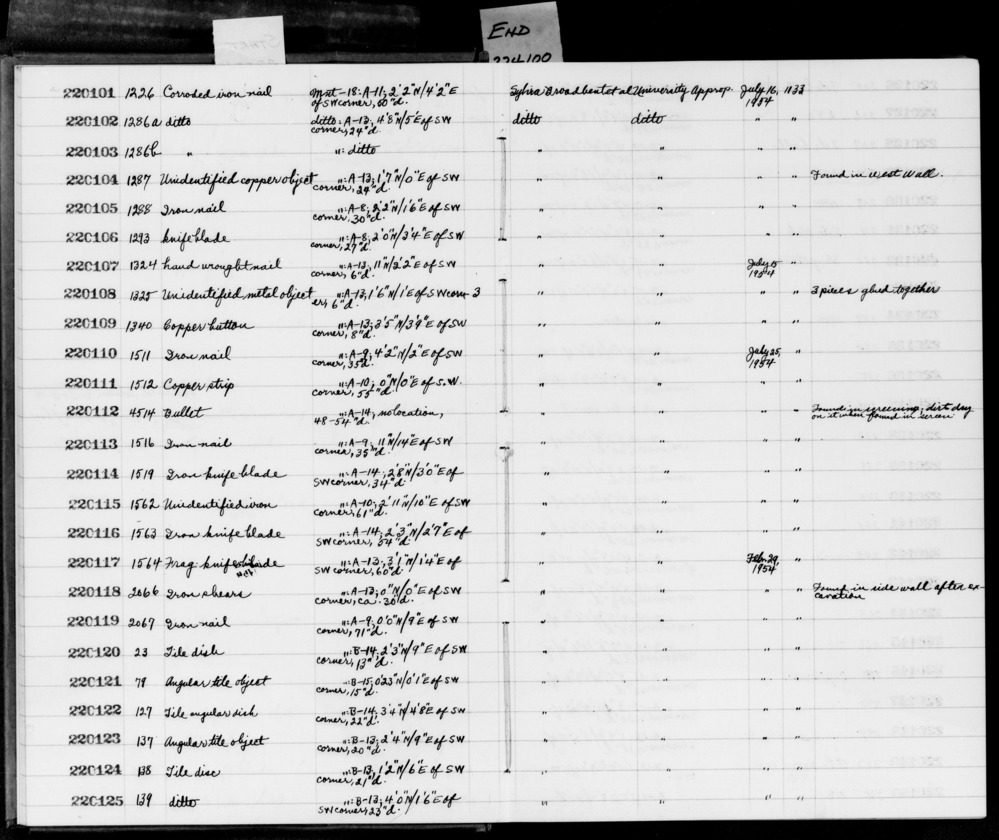 END
224100
220101 1226 Corroded iron nail Mnt-18: A-11; 2'2"N/4'2"E Sylvia Broadbent et al University Approp. July 16, 1133
of SW corner, 60"d. 1954
220102 1286a ditto ditto: A-13; 4'8"N/5"E of SW ditto ditto " "
corner, 24"d.
220103 1286b " ": ditto " " " "
220104 1287 Unidentified copper object ": A-13; 1'7"N/0"E of SW " " " " Found in west wall.
corner, 24"d.
220105 1288 Iron nail ": A-8; 2'2"N/1'6"E of SW " " " "
corner, 30"d.
220106 1293 knife blade ": A-8; 2'0"N/3'4"E of SW " " " "
corner, 27"d.
220107 1324 hand wrought nail ": A-13, 11"N/3'2"E of SW " " July "
corner, 6"d. 1954
220108 1325 Unidentified metal object ": A-13; 1'6"N/1'E of SW corn- 3 " " " " 3 pieces glued together
er, 6"d.
220109 1340 Copper button ": A-13; 3'5"N/3'9"E of SW " " " "
corner, 8"d.
220110 1511 Iron nail ": A-9; 4'2"N/2"E of SW " " July 25, "
corner, 35"d. 1954
220111 1512 Copper strip ": A-10; 0"N/0"E of S.W. " " " "
corner, 55"d.
220112 4514 Bullet ": A-14, no location, " " " " Found in screening; dirt dry
48-54"d. on it when found in screen
220113 1516 Iron nail ": A-9; 11"N/14"E of SW " " " "
corner, 35"d.
220114 1519 Iron knife blade ": A-14; 2'8"N/3'0"E of " " " "
SW corner, 34"d.
220115 1562 Unidentified iron ": A-10; 2'11"N/10"E of SW " " " "
corner, 61"d.
220116 1563 Iron knife blade ": A-14; 2'3"N/2'7"E of " " " "
SW corner, 54"d.
220117 1564 Frag knife blade ": A-13; 3'1"N/1'4"E of " " Febr. 29, "
SW corner, 60"d. 1954
220118 2066 Iron shears ": A-13; 0"N/0"E of SW " " " " Found in side wall after ex-
corner, ca. 30"d. cavation
220119 2067 Iron nail ": A-9; 0'0"N/9"E of SW " " " "
corner, 71"d.
220120 23 Tile dish ": B-14; 2'3"N/9"E of SW " " " "
corner, 13"d.
220121 79 Angular tile object ": B-15; 0'23"N/0'1"E of SW " " " "
corner, 15"d.
220122 127 Tile angular dish ": B-14; 3'4"N/4'8"E of SW " " " "
corner, 22"d.
220123 137 Angular tile object ": B-13; 2'4"N/9"E of SW " " " "
corner, 20"d.
220124 138 Tile disc ": B-13, 1'2"N/6"E of SW " " " "
corner, 21"d.
220125 139 ditto ": B-13; 4'0"N/1'6"E of " " " "
SW corner, 23"d.